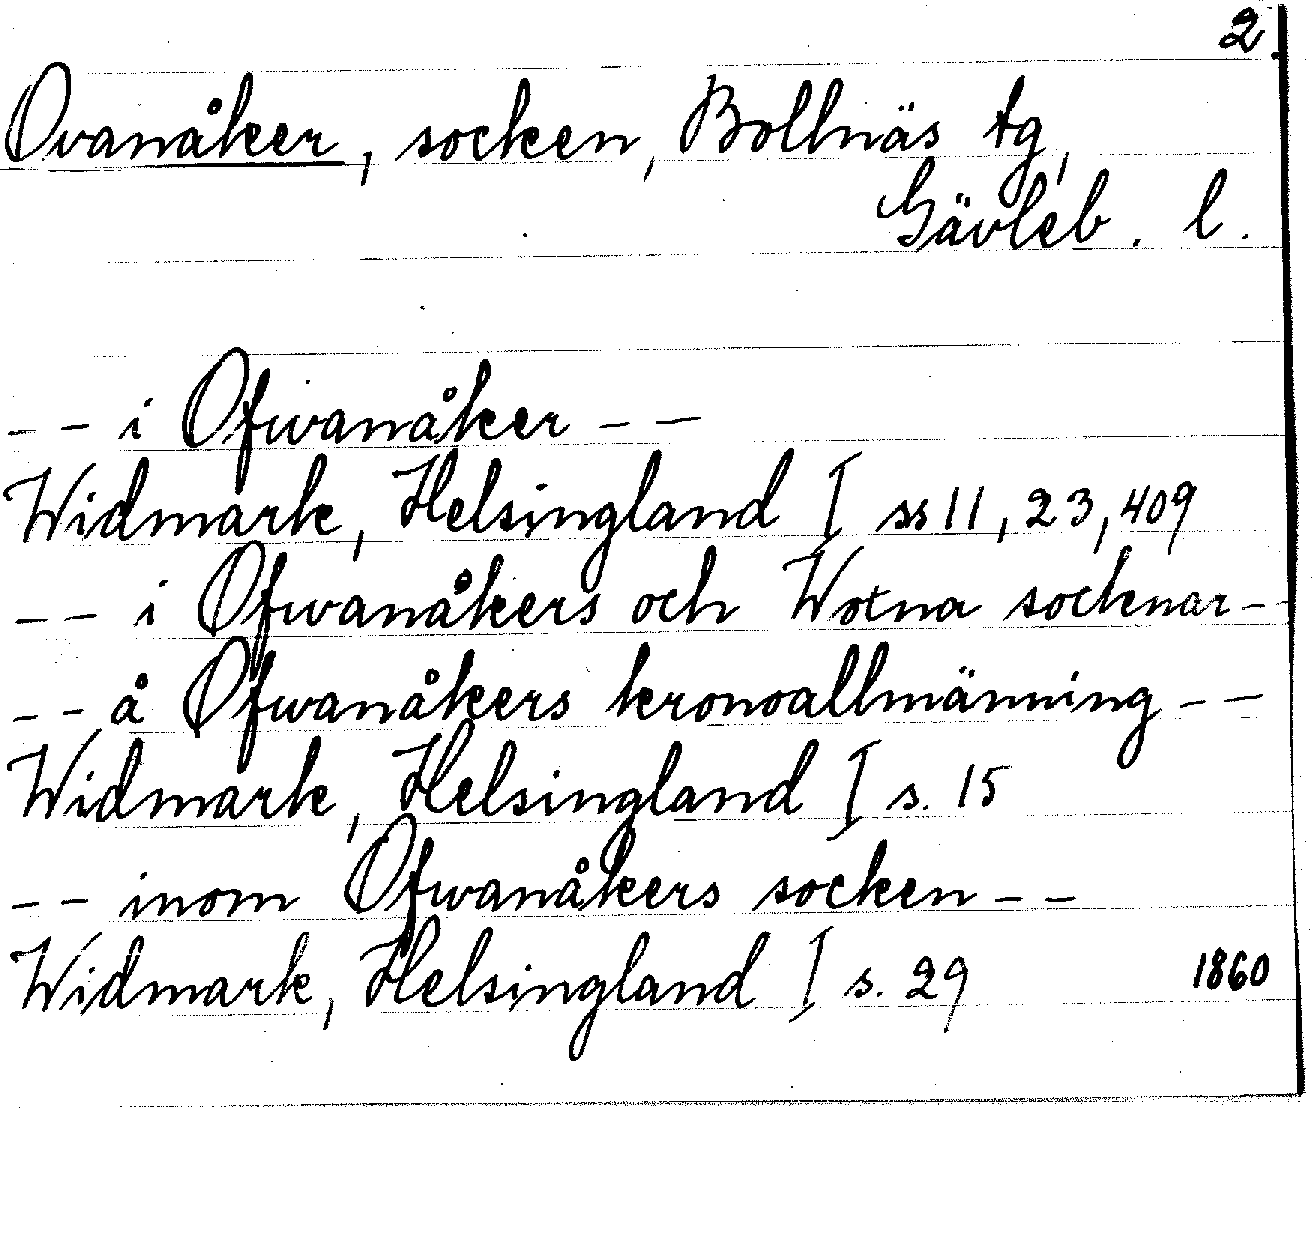 2.
Ovanåker, socken, Bollnäs tg,
Gävleb. l.
-- i Ofwanåker --
Widmark, Helsingland I ss 11, 23, 409
-- i Ofwanåkers och Woxna socknar --
-- å Ofwanåkers kronoallmänning --
Widmark, Helsingland I s. 15
-- inom Ofwanåkers socken --
Widmark, Helsingland I s. 29 1860